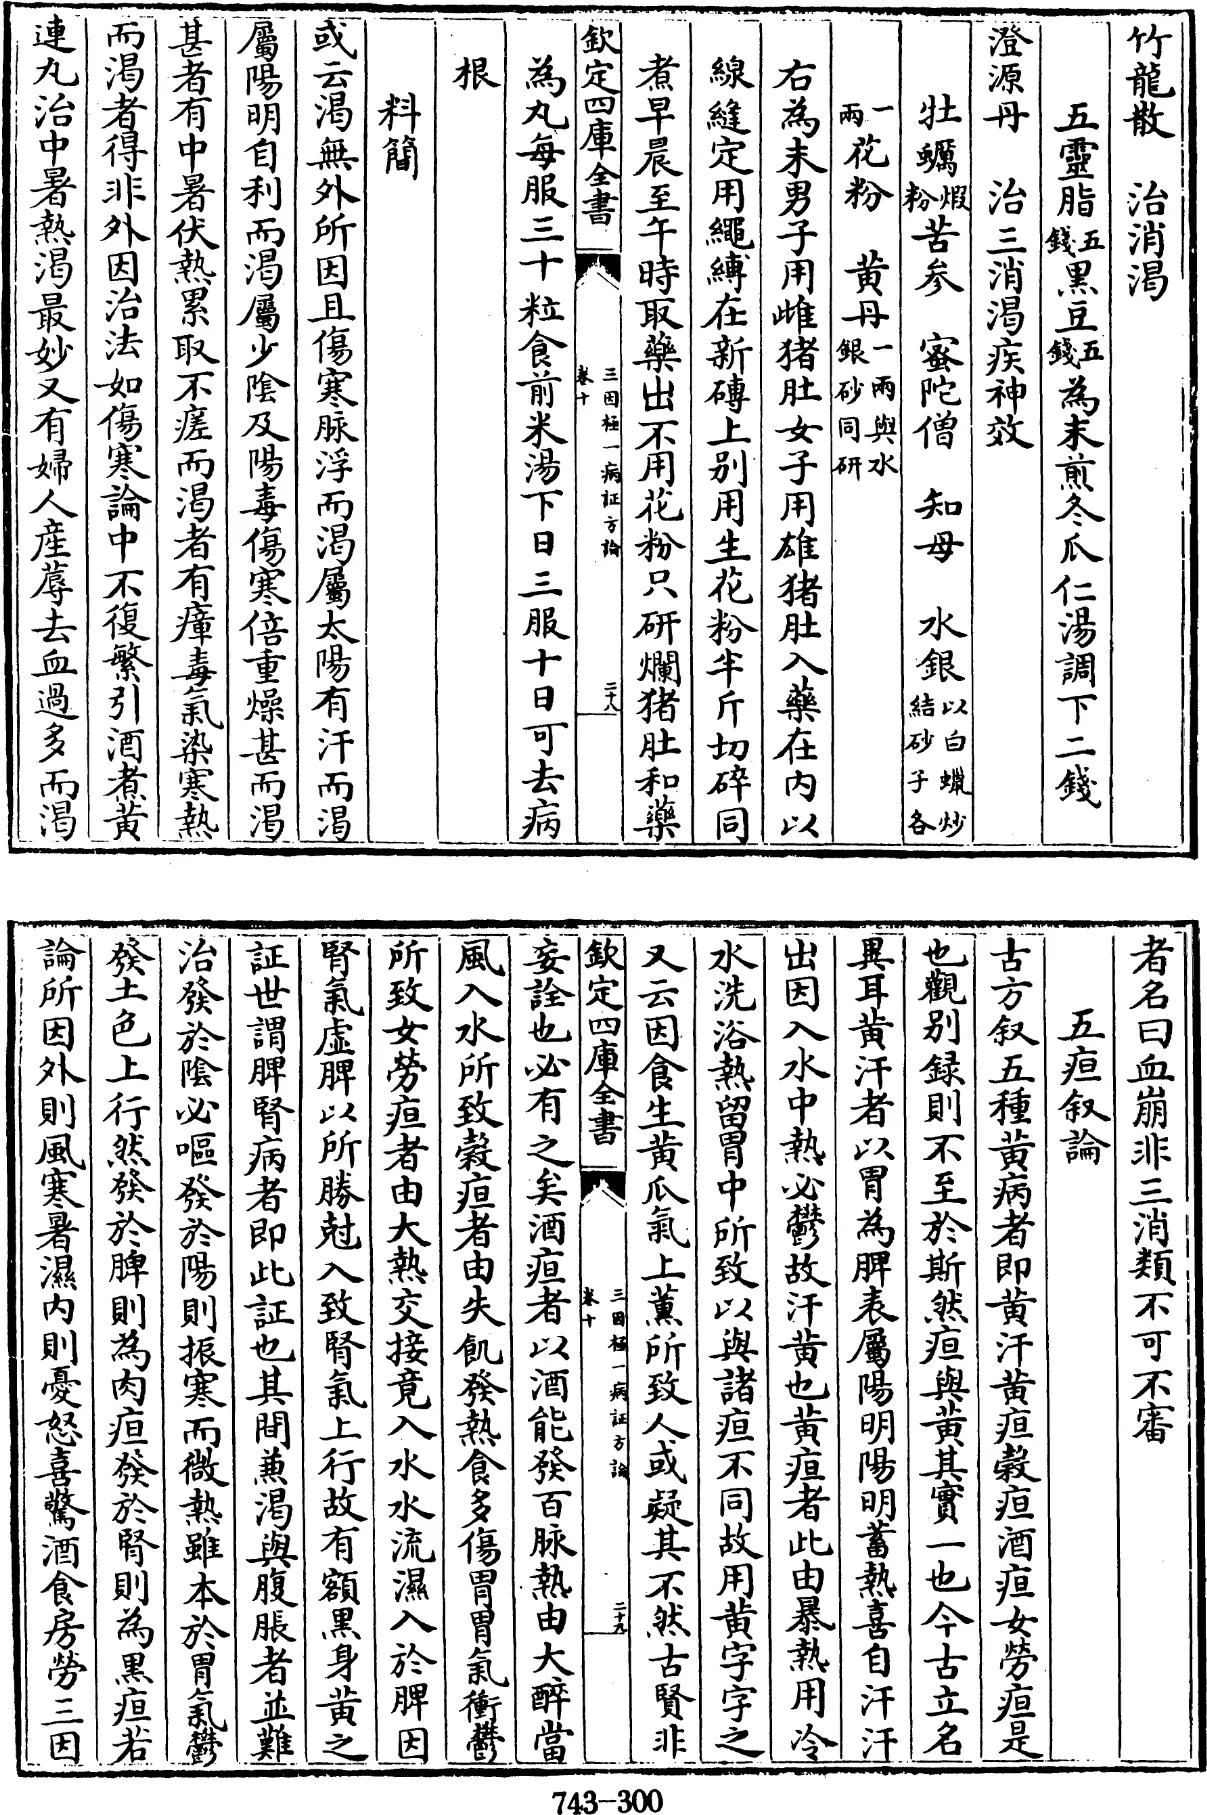 竹龍散　治消渴
五靈脂五錢黑豆五錢為末煎冬瓜仁湯調下二錢
澄源丹　治三消渴疾神效
牡蠣煆粉苦参　蜜陀僧　知母　水銀以白蠟炒結砂子各
一兩花粉　黄丹一兩與水銀砂同研
右為末男子用雌猪肚女子用雄猪肚入藥在内以
線縫定用繩縛在新磚上别用生花粉半斤切碎同
煮早晨至午時取藥出不用花粉只研爛猪肚和藥
欽定四庫全書　三因極一病証方論卷十　二十八
為丸每服三十粒食前米湯下日三服十日可去病
根
料簡
或云渴無外所因且傷寒脉浮而渴屬太陽有汗而渴
屬陽明自利而渴屬少陰及陽毒傷寒倍重燥甚而渴
甚者有中暑伏熱累取不瘥而渴者有瘴毒氣染寒熱
而渴者得非外因治法如傷寒論中不復繁引酒煮黄
連丸治中暑熱渴最妙又有婦人産蓐去血過多而渴
者名曰血崩非三消類不可不審
五疸叙論
古方叙五種黄病者即黄汗黄疸穀疸酒疸女勞疸是
也觀别録則不至於斯然疸與黄其實一也今古立名
異耳黄汗者以胃為脾表屬陽明陽明蓄熱喜自汗汗
出因入水中熱必鬱故汗黄也黄疸者此由暴熱用冷
水洗浴熱留胃中所致以與諸疸不同故用黄字字之
又云因食生黄瓜氣上薰所致人或疑其不然古賢非
欽定四庫全書　三因極一病証方論卷十　二十九
妄詮也必有之矣酒疸者以酒能發百脉熱由大醉當
風入水所致穀疸者由失飢發熱食多傷胃胃氣衝鬱
所致女勞疸者由大熱交接竟入水水流濕入於脾因
腎氣虚脾以所勝尅入致腎氣上行故有額黑身黄之
証世謂脾腎病者即此証也其間兼渴與腹脹者並難
治發於陰必嘔發於陽則振寒而微熱雖本於胃氣鬱
發土色上行然發於脾則為肉疸發於腎則為黑疸若
論所因外則風寒暑濕内則憂怒喜驚酒食房勞三因
743-300